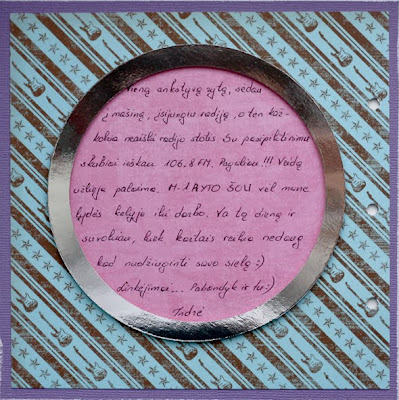 vieną ankstyvą rytą, sėdau
į mašiną, įsijungiu radiją, o ten kaž-
kokia neaiški radijo stotis. Su pasipiktinimu
skubiai ieškau 106.8 FM. Pagaliau!!! Veidą
užlieja palaima. M-1 RYTO ŠOU vėl mane
lydės kelyje iki darbo. Va tą dieną ir
suvokiau, kiek kartais reikia nedaug
kad nudžiuginti savo sielą :)
Linkėjimai... Pabandyk ir tu :)
Indrė